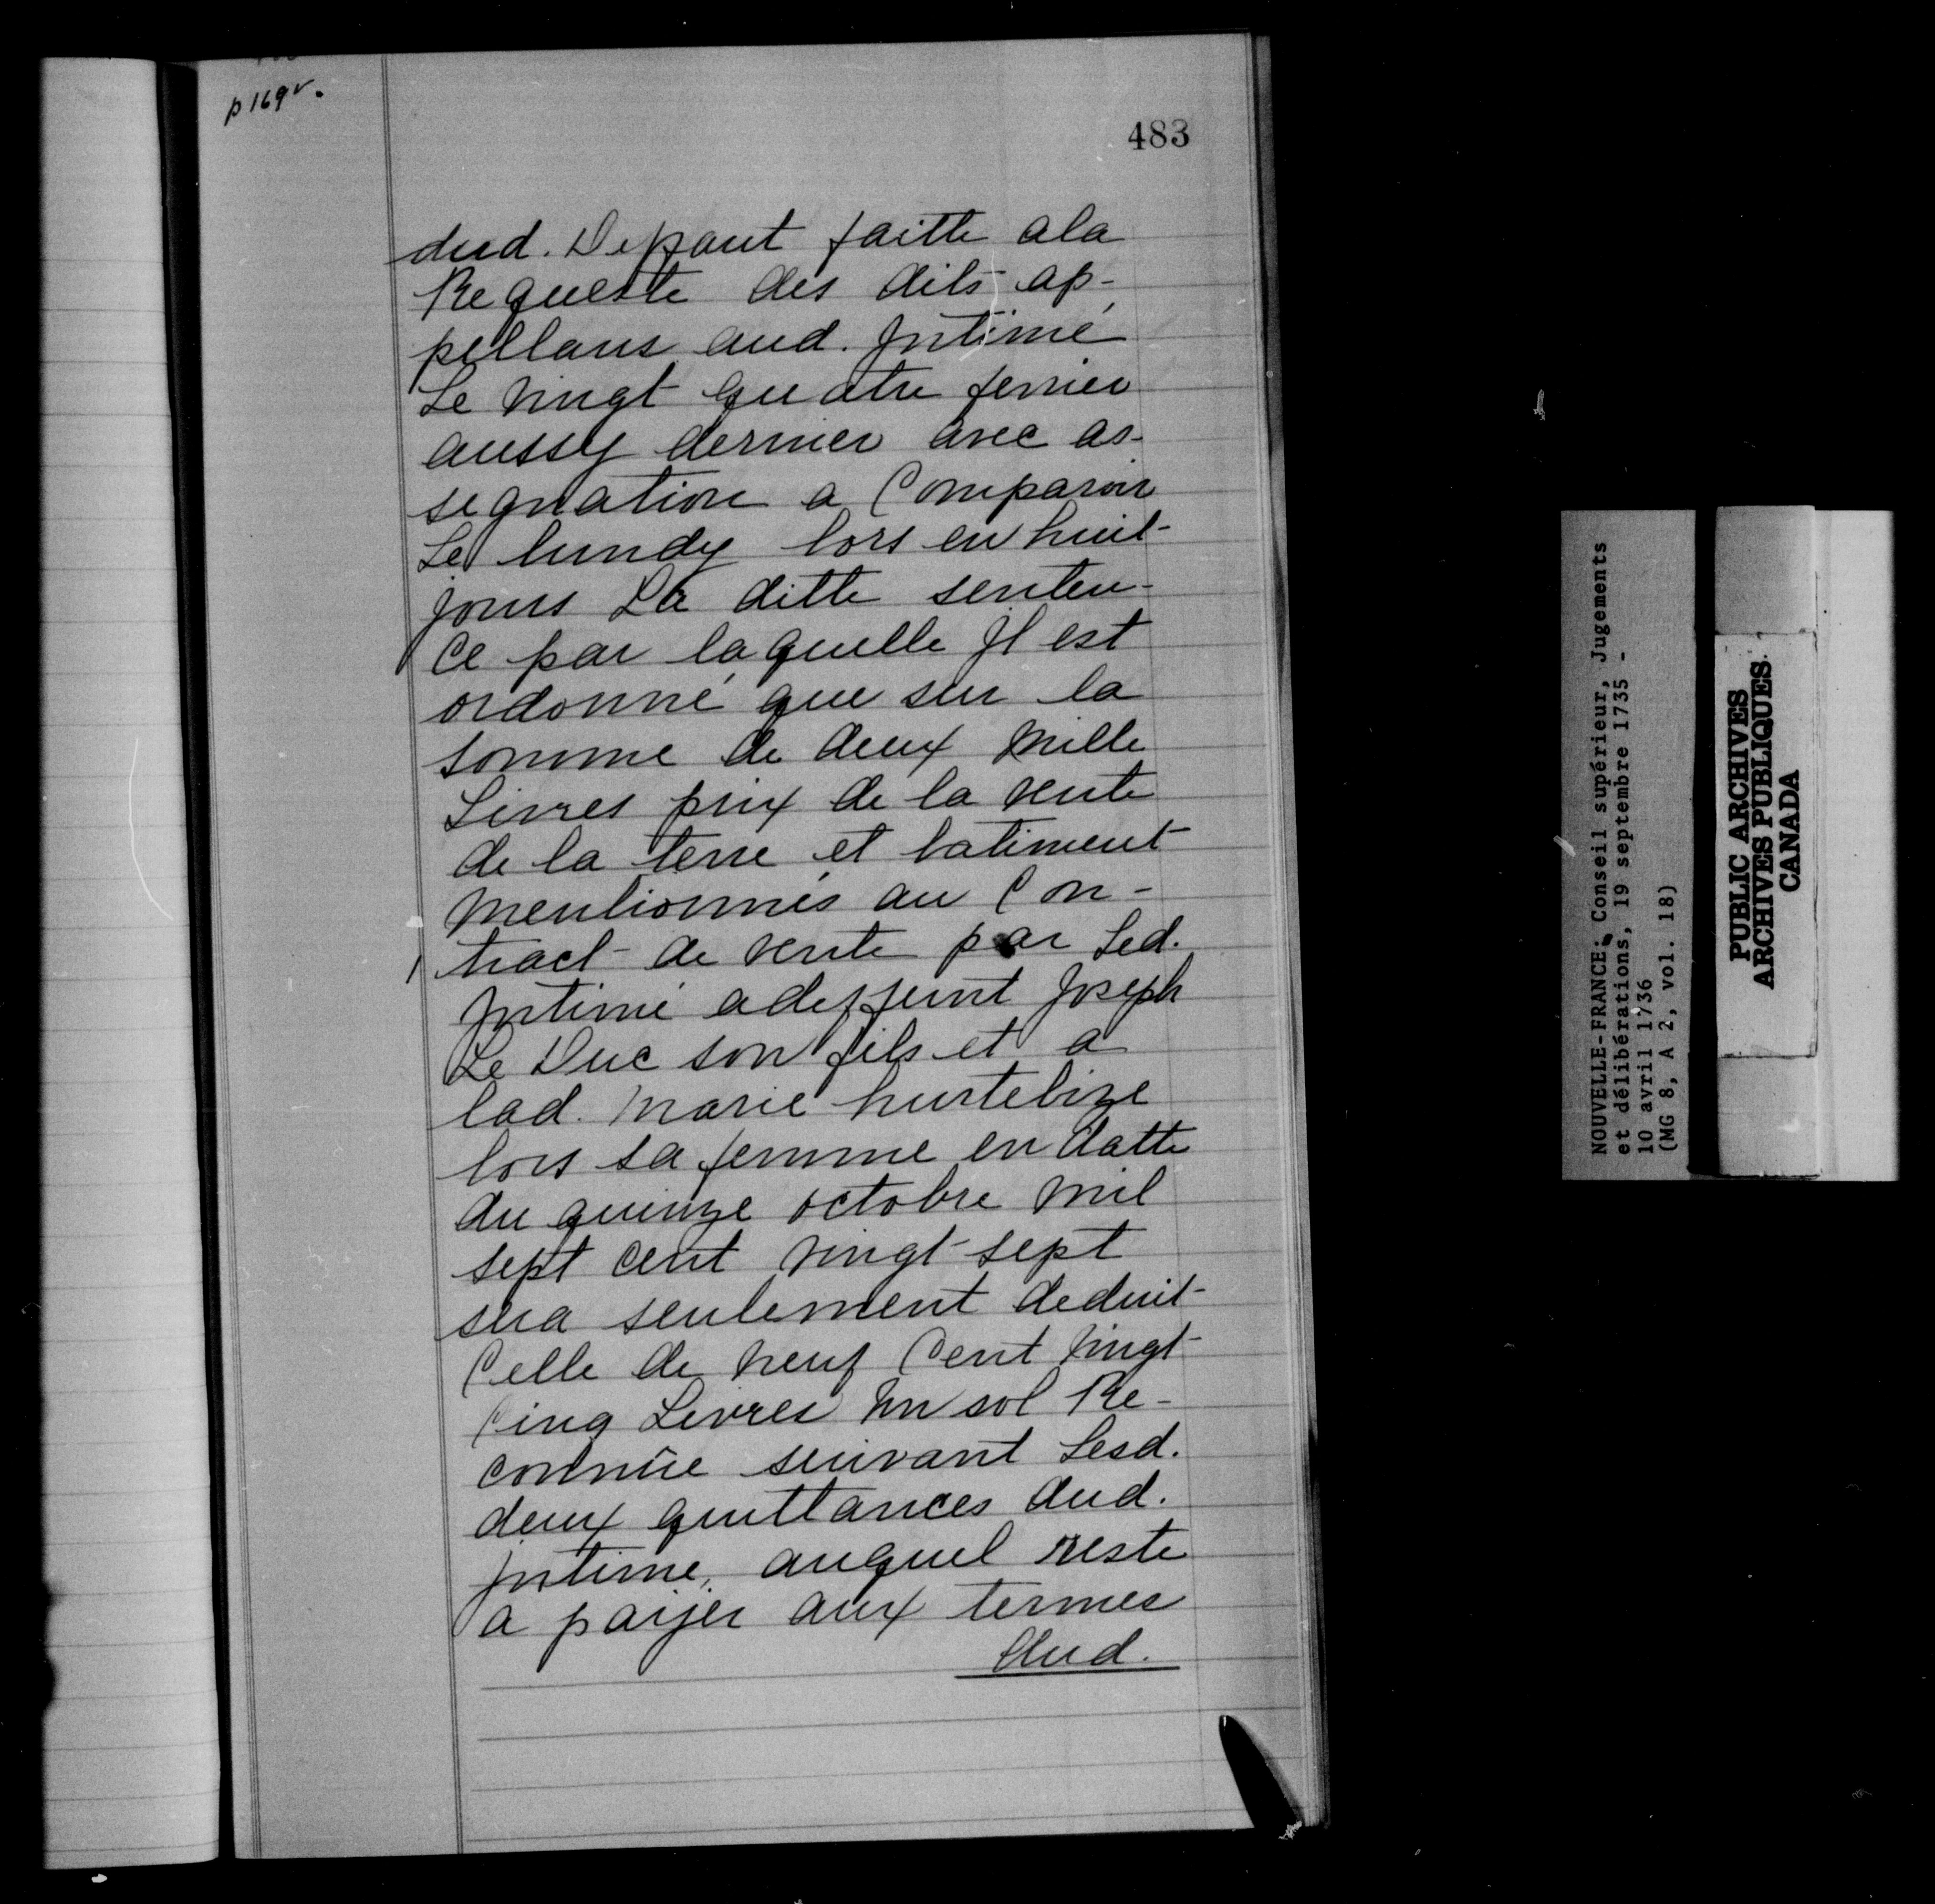 p 169 v.
483
dud. Deffaut faitte ala
Requeste des dits ap-
pellans aud. Jntimé
Le vingt quatre fevrier
aussy dernier avec as-
segnation a Comparoir
Le lundy lors en huit
jours La ditte senten-
ce par laquelle Jl est
ordonné que sur la
somme de deux Mille
Livres prix de la vente
de la terre et batiment
Mentionnés au Con-
tract de vente par Led.
Jntimé adeffunt Joseph
Le Duc son fils et a
lad. Marie hurtebize
lors sa femme en datte
du quinze octobre Mil
sept cent vingt sept
sera seulement deduit
Celle de Neuf Cent Vingt
Cinq Livres Un sol Re-
connüe suivant Lesd.
deux quittances dud.
Jntimé, auquel reste
a paijer aux termes
dud.
NOUVELLE-FRANCE: Conseil supérieur, Jugements
et délibérations, 19 septembre 1735 -
10 avril 1736
(MG 8, A 2, vol. 18)
PUBLIC ARCHIVES
ARCHIVES PUBLIQUES
CANADA